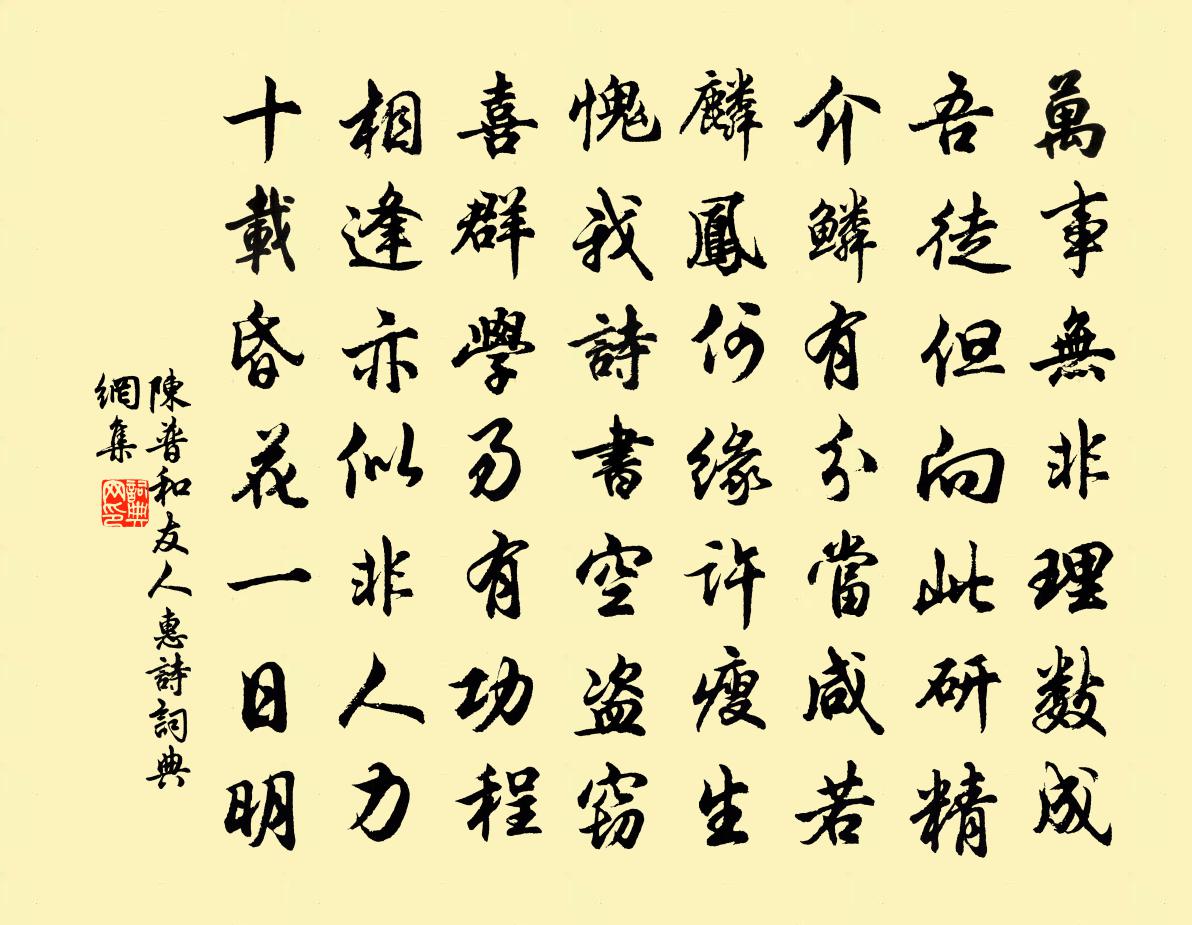 萬事無非理數成
吾徒但向此研精
介鱗有分當咸若
麟鳳何緣許瘦生
愧我詩書空盗窃
喜群學易有功程
相逢亦似非人力
十載昏花一日明
陳普和友人惠詩詞典
網集
詞典
网印